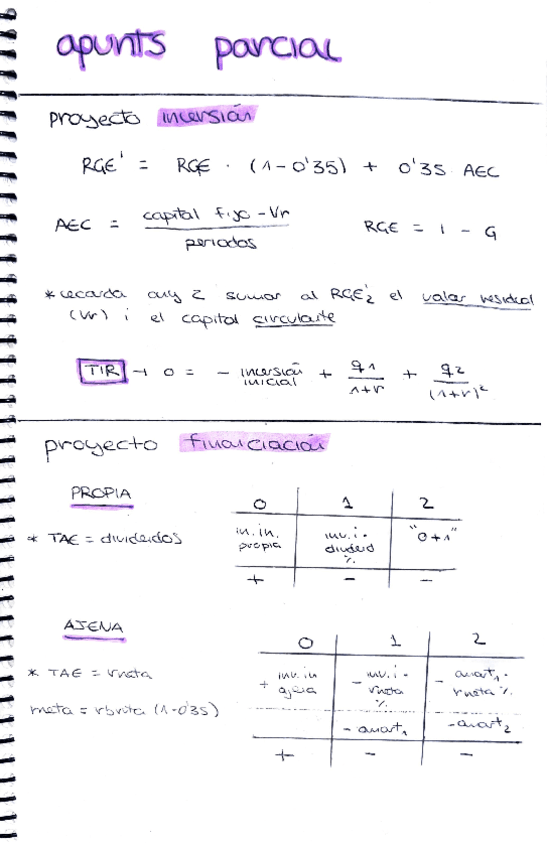 apunts parcial
proyecto inversión
RGE' = RGE · (1-0'35) + 0'35 AEC
AEC = capital fijo - Vr / periodos
RGE = I - G
*recorda any 2 sumar al RGE'2 el valor residual
(Vr) i el capital circulante
TIR → 0 = - inversión inicial + q1 / 1+r + q2 / (1+r)²
proyecto financiación
PROPIA
0 1 2
* TAE = dividendos
in.in. propia inv.i · dividend % "0+1"
+ - -
AJENA
0 1 2
* TAE = rneta
+ inv.in ajena - inv.i · rneta % - amort1 · rneta %
rneta = rbruta (1-0'35)
- amort1 - amort2
+ - -